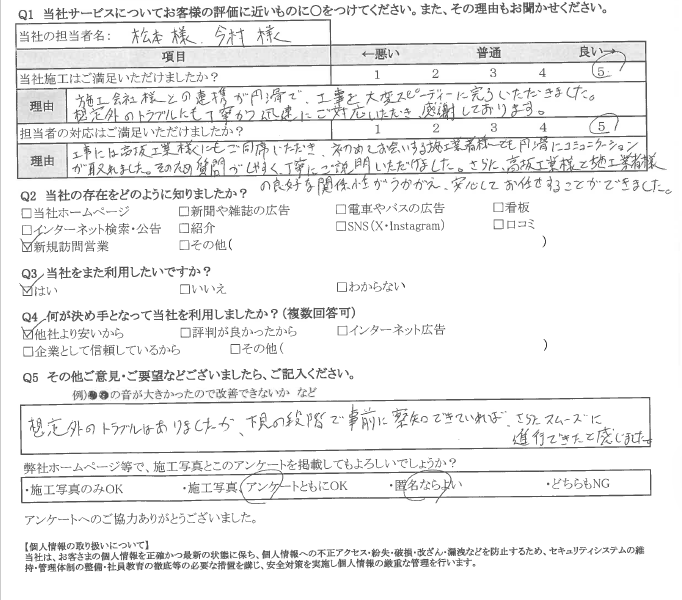 Q1 当社サービスについてお客様の評価に近いものに〇をつけてください。また、その理由もお聞かせください。
当社の担当者名: 松本様、今村様
項目 ←悪い 普通 良い→
当社施工はご満足いただけましたか? 1 2 3 4 5
理由 施工会社様との連携が円滑で、工事を大変スピーディーに完了いただきました。
想定外のトラブルにも丁寧かつ迅速にご対応いただき、感謝しております。
担当者の対応はご満足いただけましたか? 1 2 3 4 5
理由 工事には高坂工業様にもご同席いただき、初めてお会いする施工業者様とでも円滑にコミュニケーション
が取れました。そのため質問がしやすく、丁寧にご説明いただけました。さらに、高坂工業様と施工業者様
の良好な関係性がうかがえ、安心してお任せすることができました。
Q2 当社の存在をどのように知りましたか?
□当社ホームページ □新聞や雑誌の広告 □電車やバスの広告 □看板
□インターネット検索・公告 □紹介 □SNS(X・Instagram) □口コミ
☑新規訪問営業 □その他( )
Q3 当社をまた利用したいですか?
☑はい □いいえ □わからない
Q4 何が決め手となって当社を利用しましたか?(複数回答可)
☑他社より安いから □評判が良かったから □インターネット広告
□企業として信頼しているから □その他( )
Q5 その他ご意見・ご要望などございましたら、ご記入ください。
例)●●の音が大きかったので改善できないか など
想定外のトラブルはありましたが、下見の段階で事前に察知できていれば、さらにスムーズに
進行できたと感じました。
弊社ホームページ等で、施工写真とこのアンケートを掲載してもよろしいでしょうか?
・施工写真のみOK ・施工写真、アンケートともにOK ・匿名ならよい ・どちらもNG
アンケートへのご協力ありがとうございました。
【個人情報の取り扱いについて】
当社は、お客さまの個人情報を正確かつ最新の状態に保ち、個人情報への不正アクセス・紛失・破損・改ざん・漏洩などを防止するため、セキュリティシステムの維
持・管理体制の整備・社員教育の徹底等の必要な措置を講じ、安全対策を実施し個人情報の厳重な管理を行います。